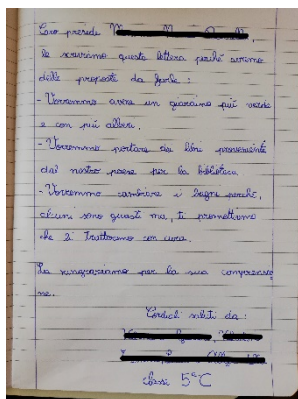 Caro preside
le scriviamo questa lettera perché avremo
delle proposte da farle :
- Vorremmo avere un giardino più verde
e con più alberi.
- Vorremmo portare dei libri proveniente
dal nostro paese per la biblioteca.
- Vorremmo cambiare i bagni perché,
alcuni sono guasti ma, ti promettiamo
che li tratteremo con cura.
La ringraziamo per la sua comprensio
ne.
Cordiali saluti da :
classe 5ªC